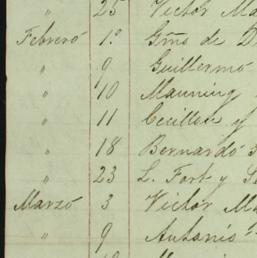 " 25 Victor Ma
Febrero 1.º Gmo de D
" 9 Guillermo
" 10 Manning
" 11 y
" 18 Bernardo
" 23 L. Fort y
Marzo 3 Victor Ma
" 9 Antonio